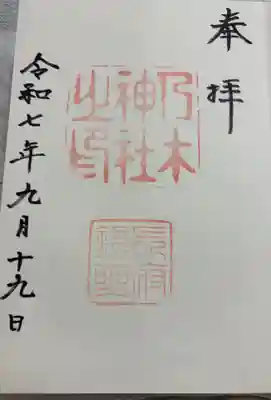 奉拝
乃木
神社
之印
令和七年九月十九日